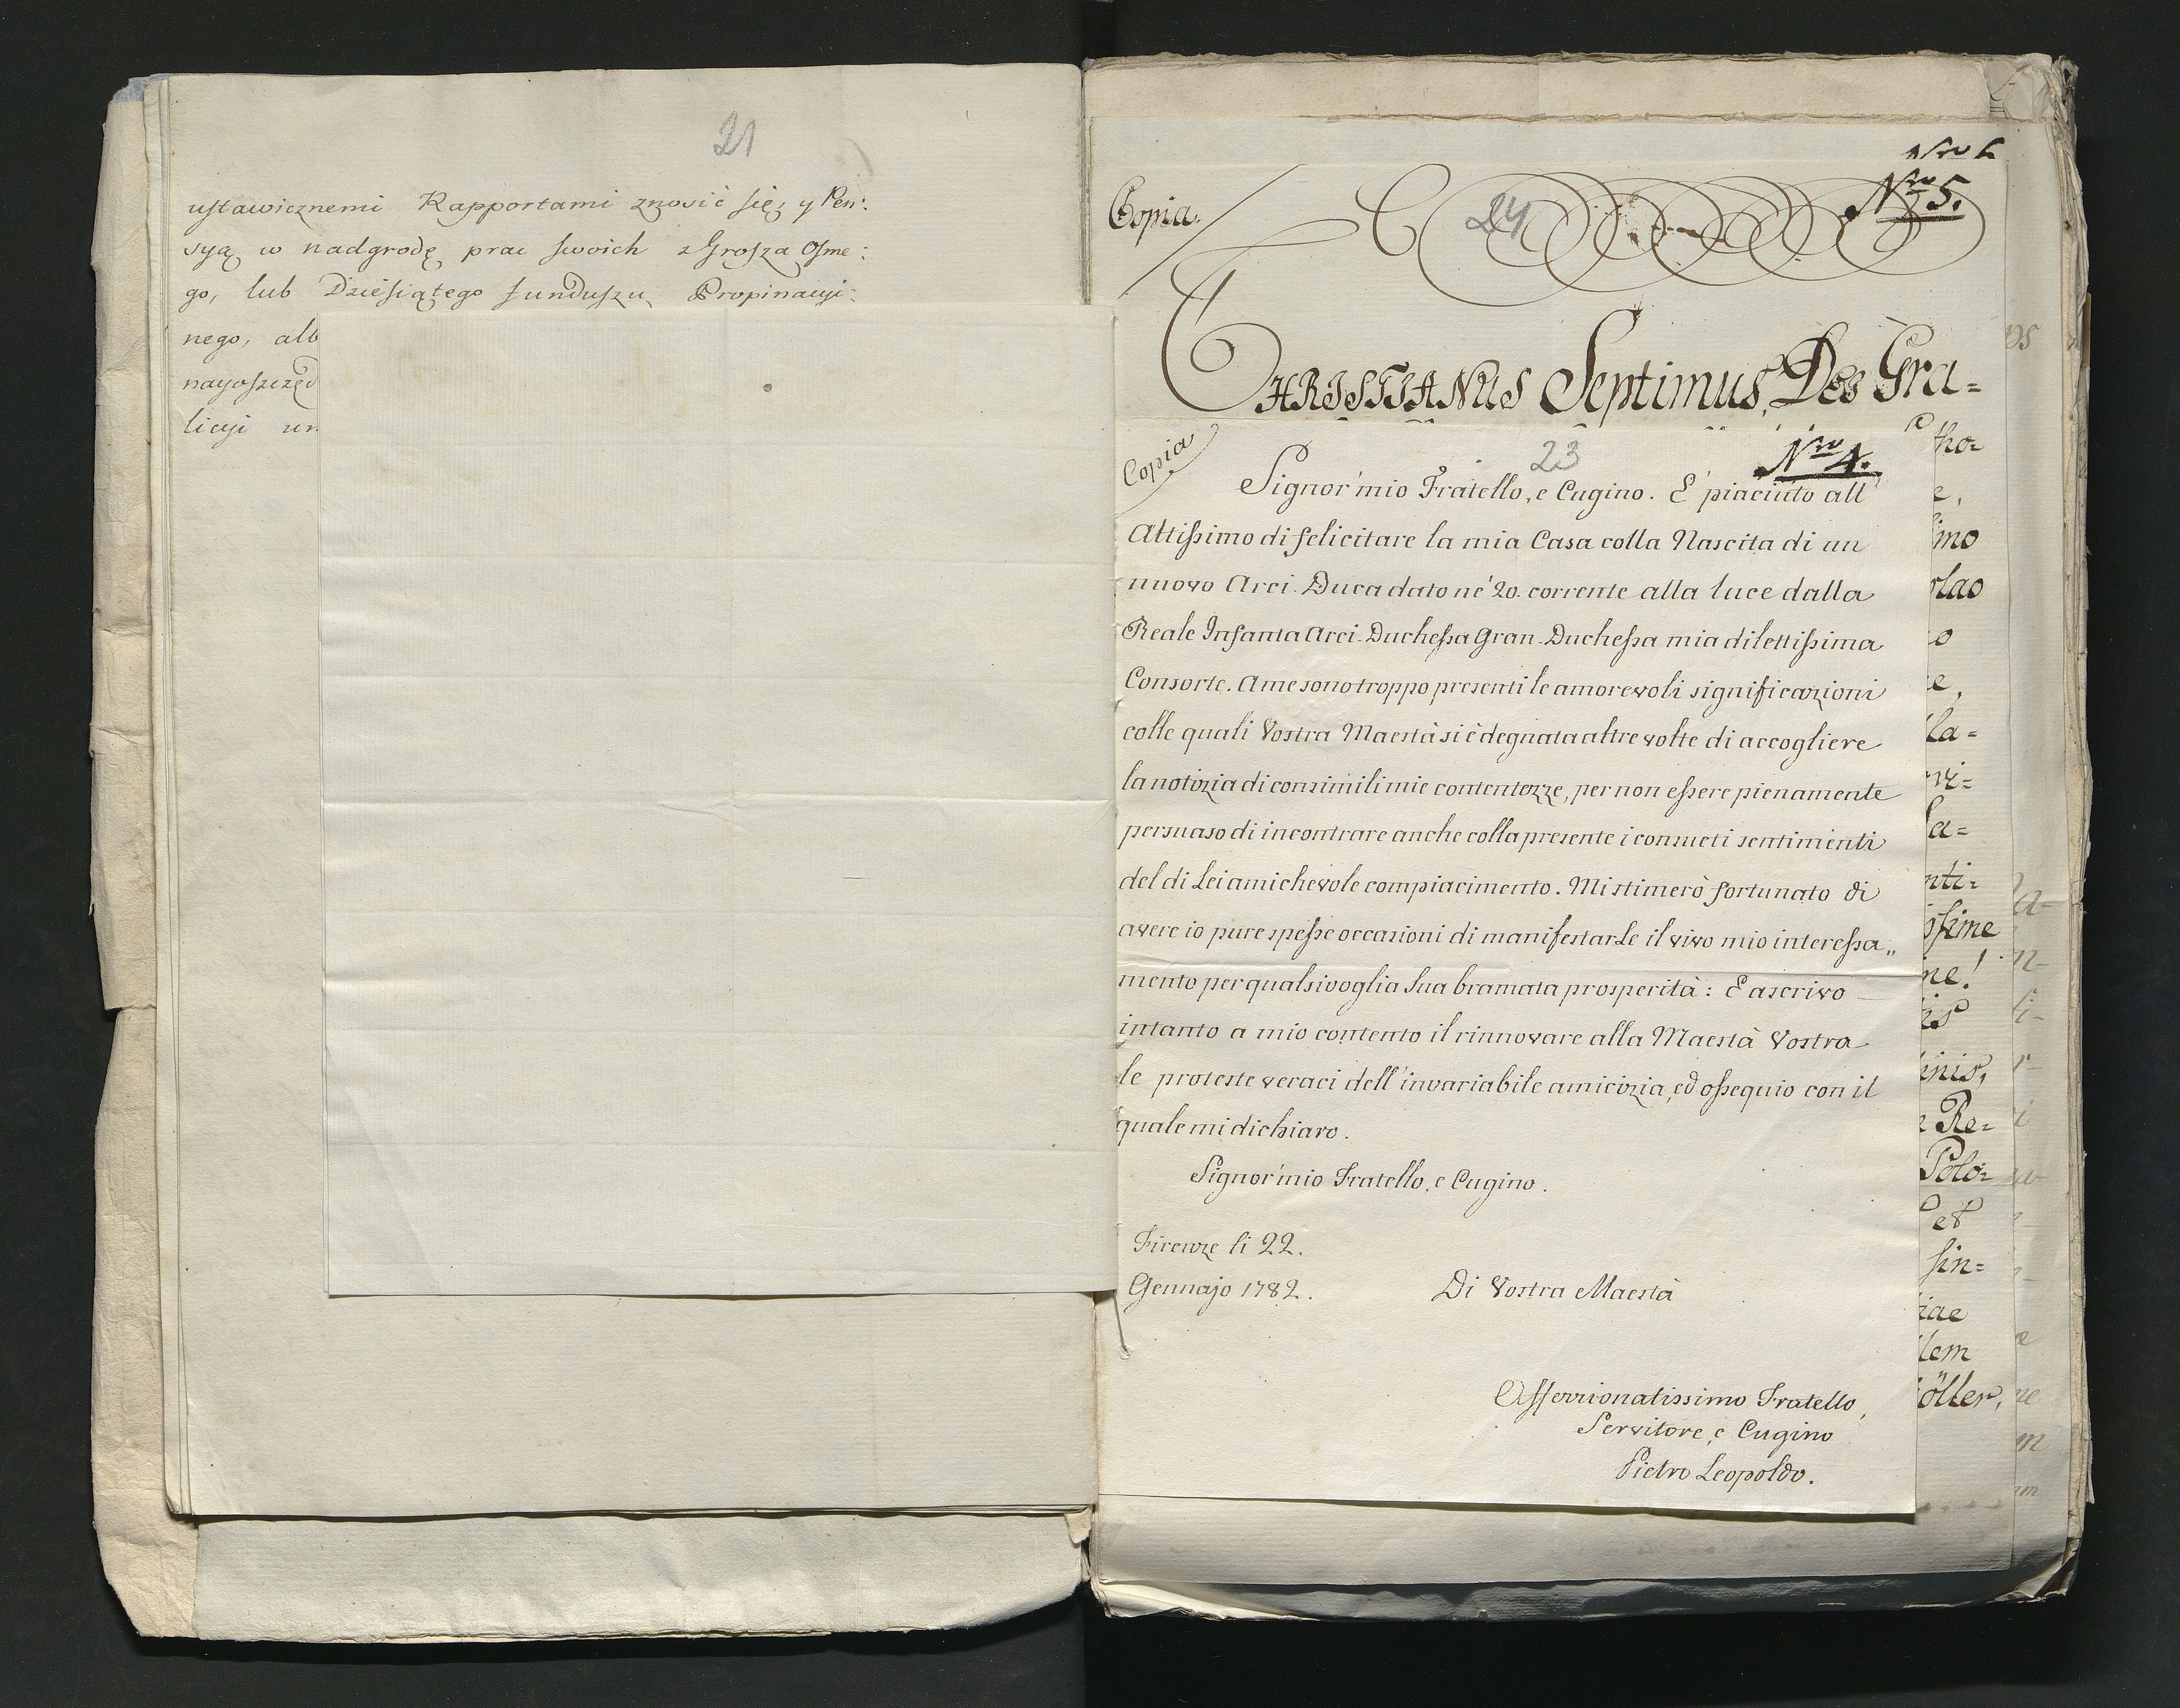 21
ustawicznemi Rapportami znosić się, y Pen:
syą w nadgrodę prac swoich z Grosza Osme:
go, lub Dziesiątego funduszu Propinacyi:
nego, alb
nayoszczęd
licyi
Nro 5.
Copia.
24
CHRISTIANUS Septimus, Dei Gra-
Copia
23
Nro 4.
Signor mio Fratello, e Cugino. E' piaciuto all'
Altissimo di felicitare la mia Casa colla Nascita di un
nuovo Arci-Duca dato ne' 20. corrente alla luce dalla
Reale Infanta Arci-Duchessa Gran-Duchessa mia dilettissima
Consorte. A me sono troppo presenti le amorevoli significazioni
colle quali Vostra Maestà si è degnata altre volte di accogliere
la notizia di consimili mie contentezze, per non essere pienamente
persuaso di incontrare anche colla presente i consueti sentimenti
del di Lei amichevole compiacimento. Mi stimerò fortunato di
avere io pure spesse occasioni di manifestarLe il vivo mio interessa„
mento per qualsivoglia Sua bramata prosperità: E ascrivo
intanto a mio contento il rinnovare alla Maestà Vostra
le proteste veraci dell' invariabile amicizia, ed ossequio con il
quale mi dichiaro.
Signor mio Fratello, e Cugino.
Firenze li 22.
Gennajo 1782.
Di Vostra Maestà
Affezzionatissimo Fratello,
Servitore, e Cugino
Pietro Leopoldo.
tho-
imo
la-
vi-
nti-
ssime
ne!
inis,
Re-
Polo-
et
sin-
iae
lem
öller,